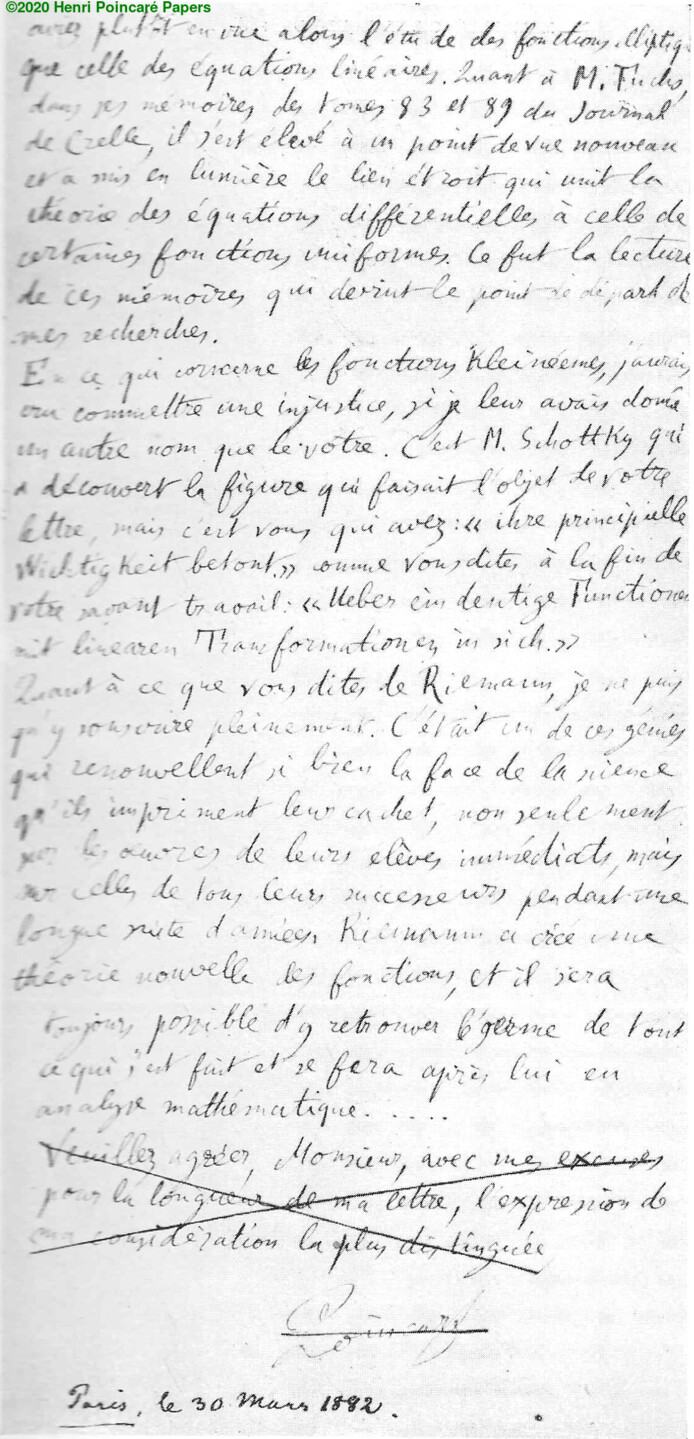 ©2020 Henri Poincaré Papers
aviez plutôt en vue alors l'étude des fonctions elliptiq
que celle des équations linéaires. Quant à M. Fuchs,
dans ses mémoires des tomes 83 et 89 du Journal
de Crelle, il s'est elevé à un point de vue nouveau
et a mis en lumière le lien étroit qui unit la
théorie des équations différentielles à celle de
certaines fonctions uniformes. Ce fut la lecture
de ces mémoires qui devint le point de départ de
mes recherches.
En ce qui concerne les fonctions Kleinéennes, j'aurais
cru commettre une injustice, si je leur avais donné
un autre nom que le votre. C'est M. Schottky qui
a découvert la figure qui faisait l'objet de votre
lettre, mais c'est vous qui avez: « ihre principielle
Wichtigkeit betont,» comme vous dites à la fin de
votre savant travail: « Ueber eindeutige Functionen
mit linearen Transformationen in sich.»
Quant à ce que vous dites de Riemann, je ne puis
qu'y souscrire pleinement. C'était un de ces génies
qui renouvellent si bien la face de la science
qu'ils impriment leur cachet, non seulement
sur les œuvres de leurs elèves immédiats, mais
sur celles de tous leurs successeurs pendant une
longue suite d'années. Riemann a créé une
théorie nouvelle des fonctions, et il sera
toujours possible d'y retrouver le germe de tout
ce qui s'est fait et se fera après lui en
analyse mathématique. . . . . .
Veuillez agréer, Monsieur, avec mes excuses
pour la longueur de ma lettre, l'expression de
ma considération la plus distinguée
Poincaré
Paris, le 30 Mars 1882.